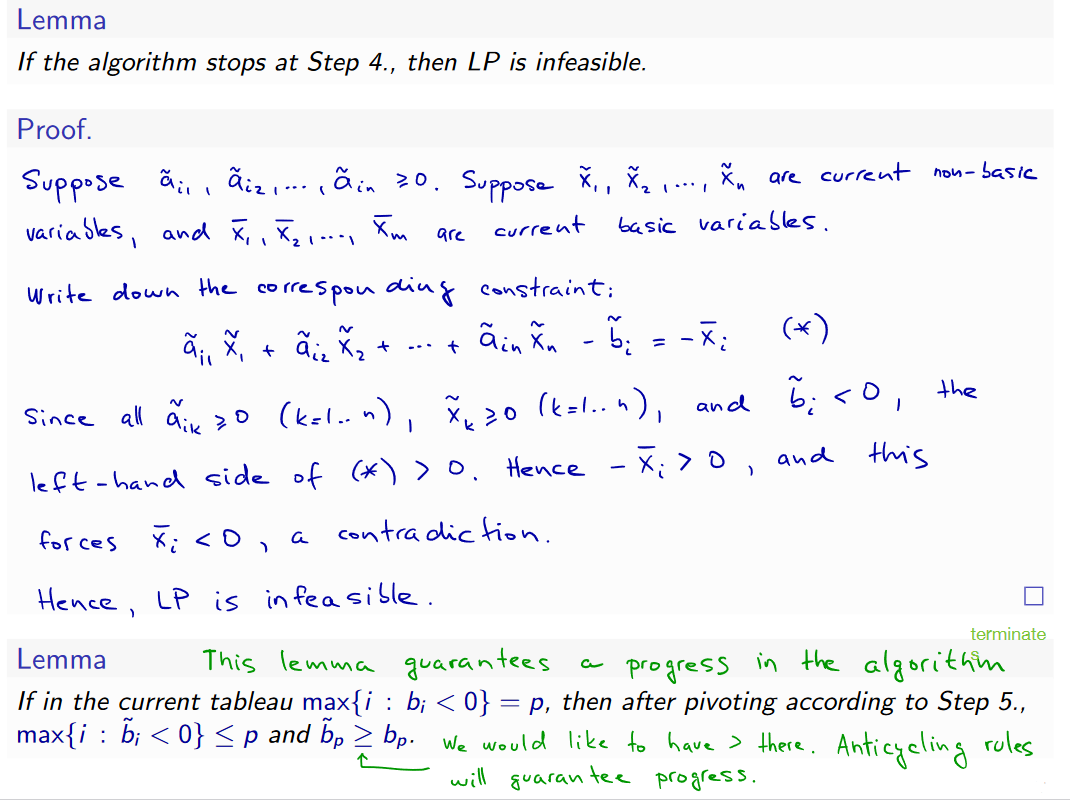 Lemma
If the algorithm stops at Step 4., then LP is infeasible.
Proof.
Suppose ã_{i1}, ã_{i2}, ..., ã_{in} ⩾ 0. Suppose x̃_1, x̃_2, ..., x̃_n are current non-basic
variables, and x̄_1, x̄_2, ..., x̄_m are current basic variables.
Write down the corresponding constraint:
ã_{i1} x̃_1 + ã_{i2} x̃_2 + ... + ã_{in} x̃_n - b̃_i = - x̄_i (*)
Since all ã_{ik} ⩾ 0 (k=1..n), x̃_k ⩾ 0 (k=1..n), and b̃_i < 0, the
left-hand side of (*) > 0. Hence - x̄_i > 0, and this
forces x̄_i < 0, a contradiction.
Hence, LP is infeasible. □
terminate
s
Lemma This lemma guarantees a progress in the algorithm
If in the current tableau max{i : b_i < 0} = p, then after pivoting according to Step 5.,
max{i : b̃_i < 0} ≤ p and b̃_p ≥ b_p. We would like to have > there. Anticycling rules
will guarantee progress.